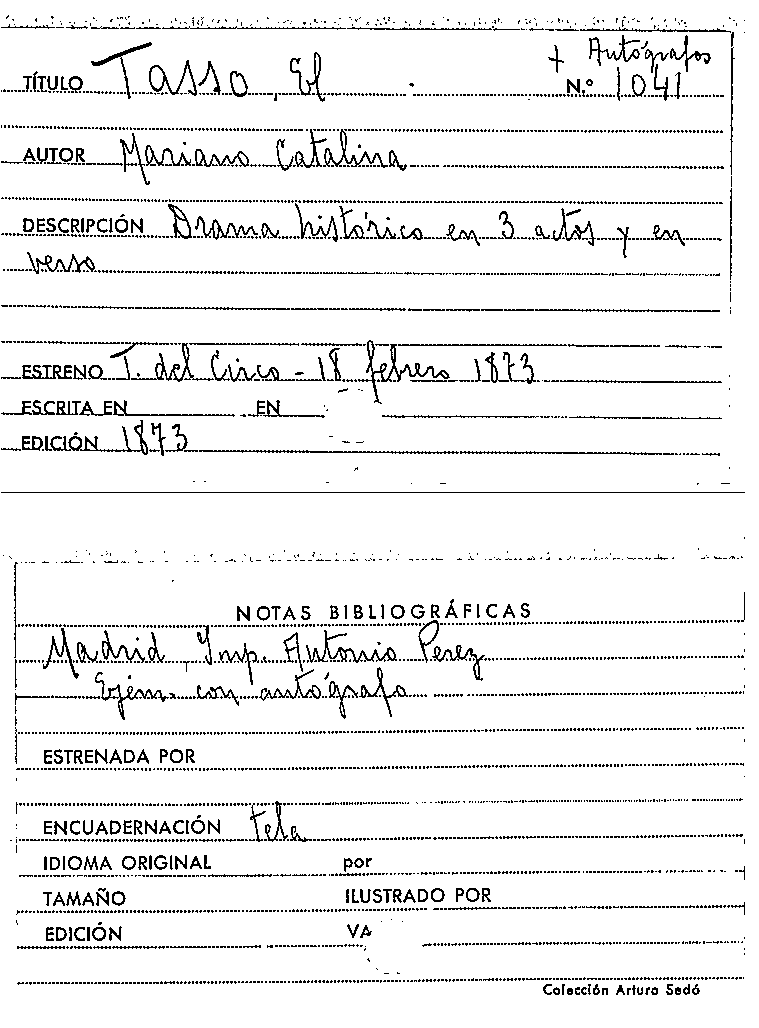 + Autógrafos
TÍTULO Tasso, El N.º 1041
AUTOR Mariano Catalina
DESCRIPCIÓN Drama histórico en 3 actos y en
verso
ESTRENO T. del Circo - 18 febrero 1873
ESCRITA EN EN
EDICIÓN 1873
NOTAS BIBLIOGRÁFICAS
Madrid, Imp. Antonio Perez
Ejem. con autógrafo
ESTRENADA POR
ENCUADERNACIÓN tela
IDIOMA ORIGINAL por
TAMAÑO ILUSTRADO POR
EDICIÓN
Colección Arturo Sedó